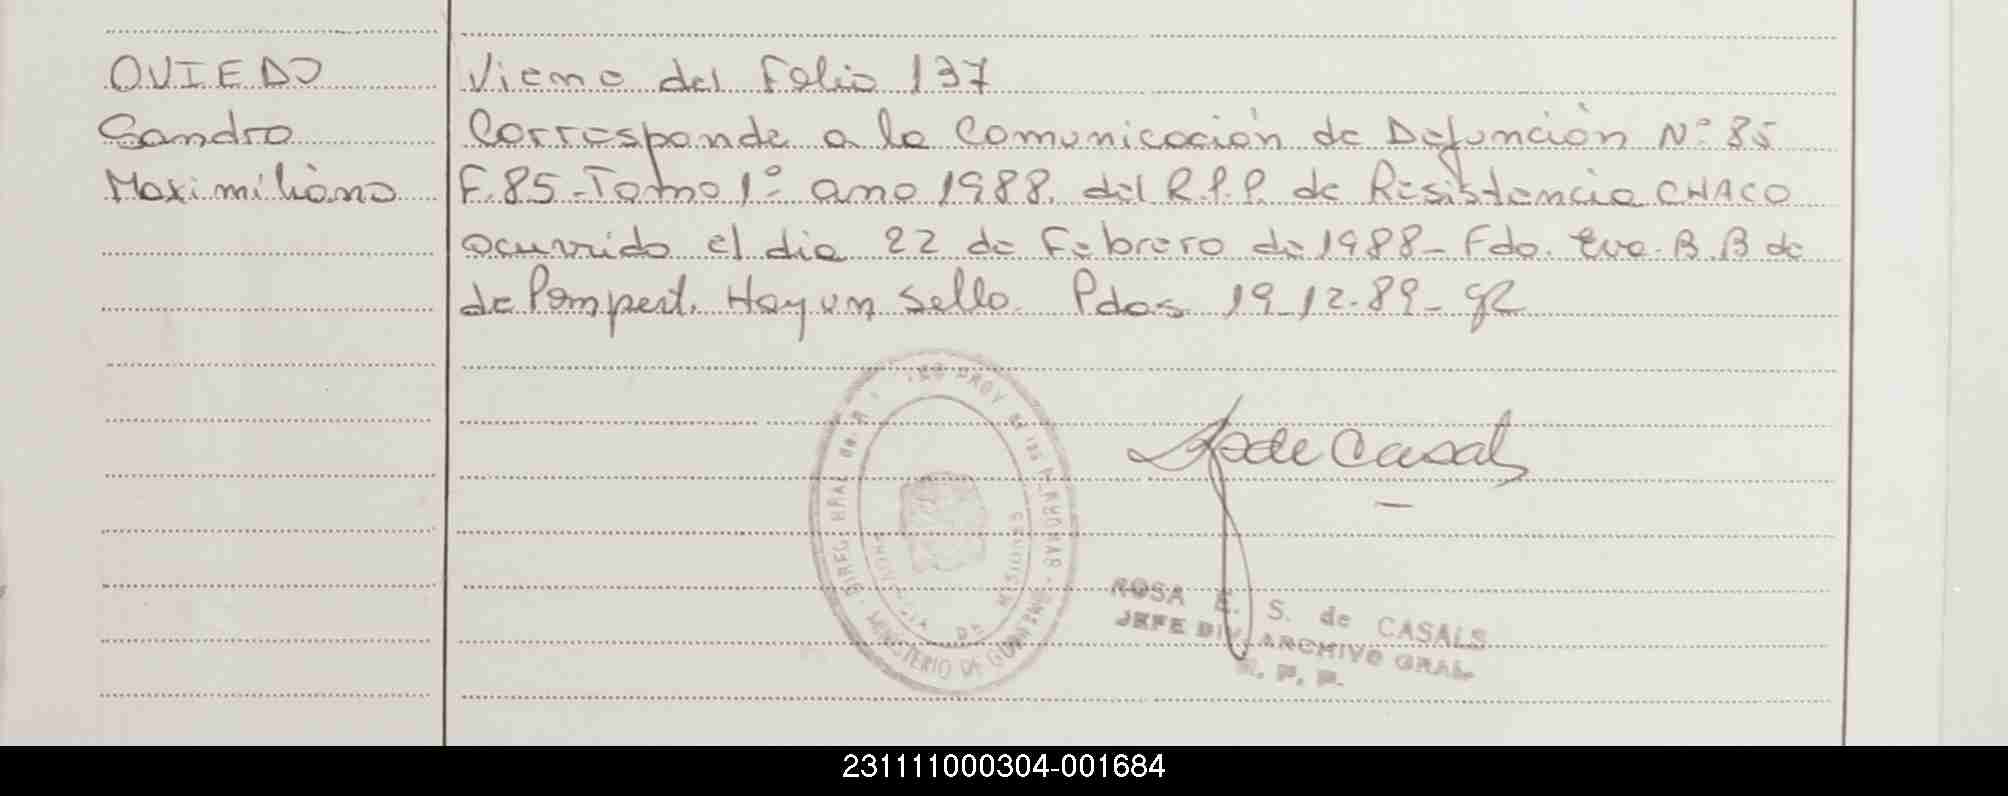 OVIEDO
Sandro
Maximiliano
Viene del Folio 137
Corresponde a la Comunicación de Defunción Nº 85
F. 85 - Tomo 1º ano 1988. del R.P.P. de Resistencia CHACO
ocurrido el dia 22 de Febrero de 1988 - Fdo. Eva. B. B de
de Pompert. Hay un sello. Pdas 19-12-89-
DIREC. GRAL DE R. PROV DE LAS PERSONAS
MINISTERIO DE GOBIERNO
PROVINCIA DE MISIONES
de Casals
ROSA E. S. de CASALS
JEFE DIV. ARCHIVO GRAL.
R. P. P.
231111000304-001684